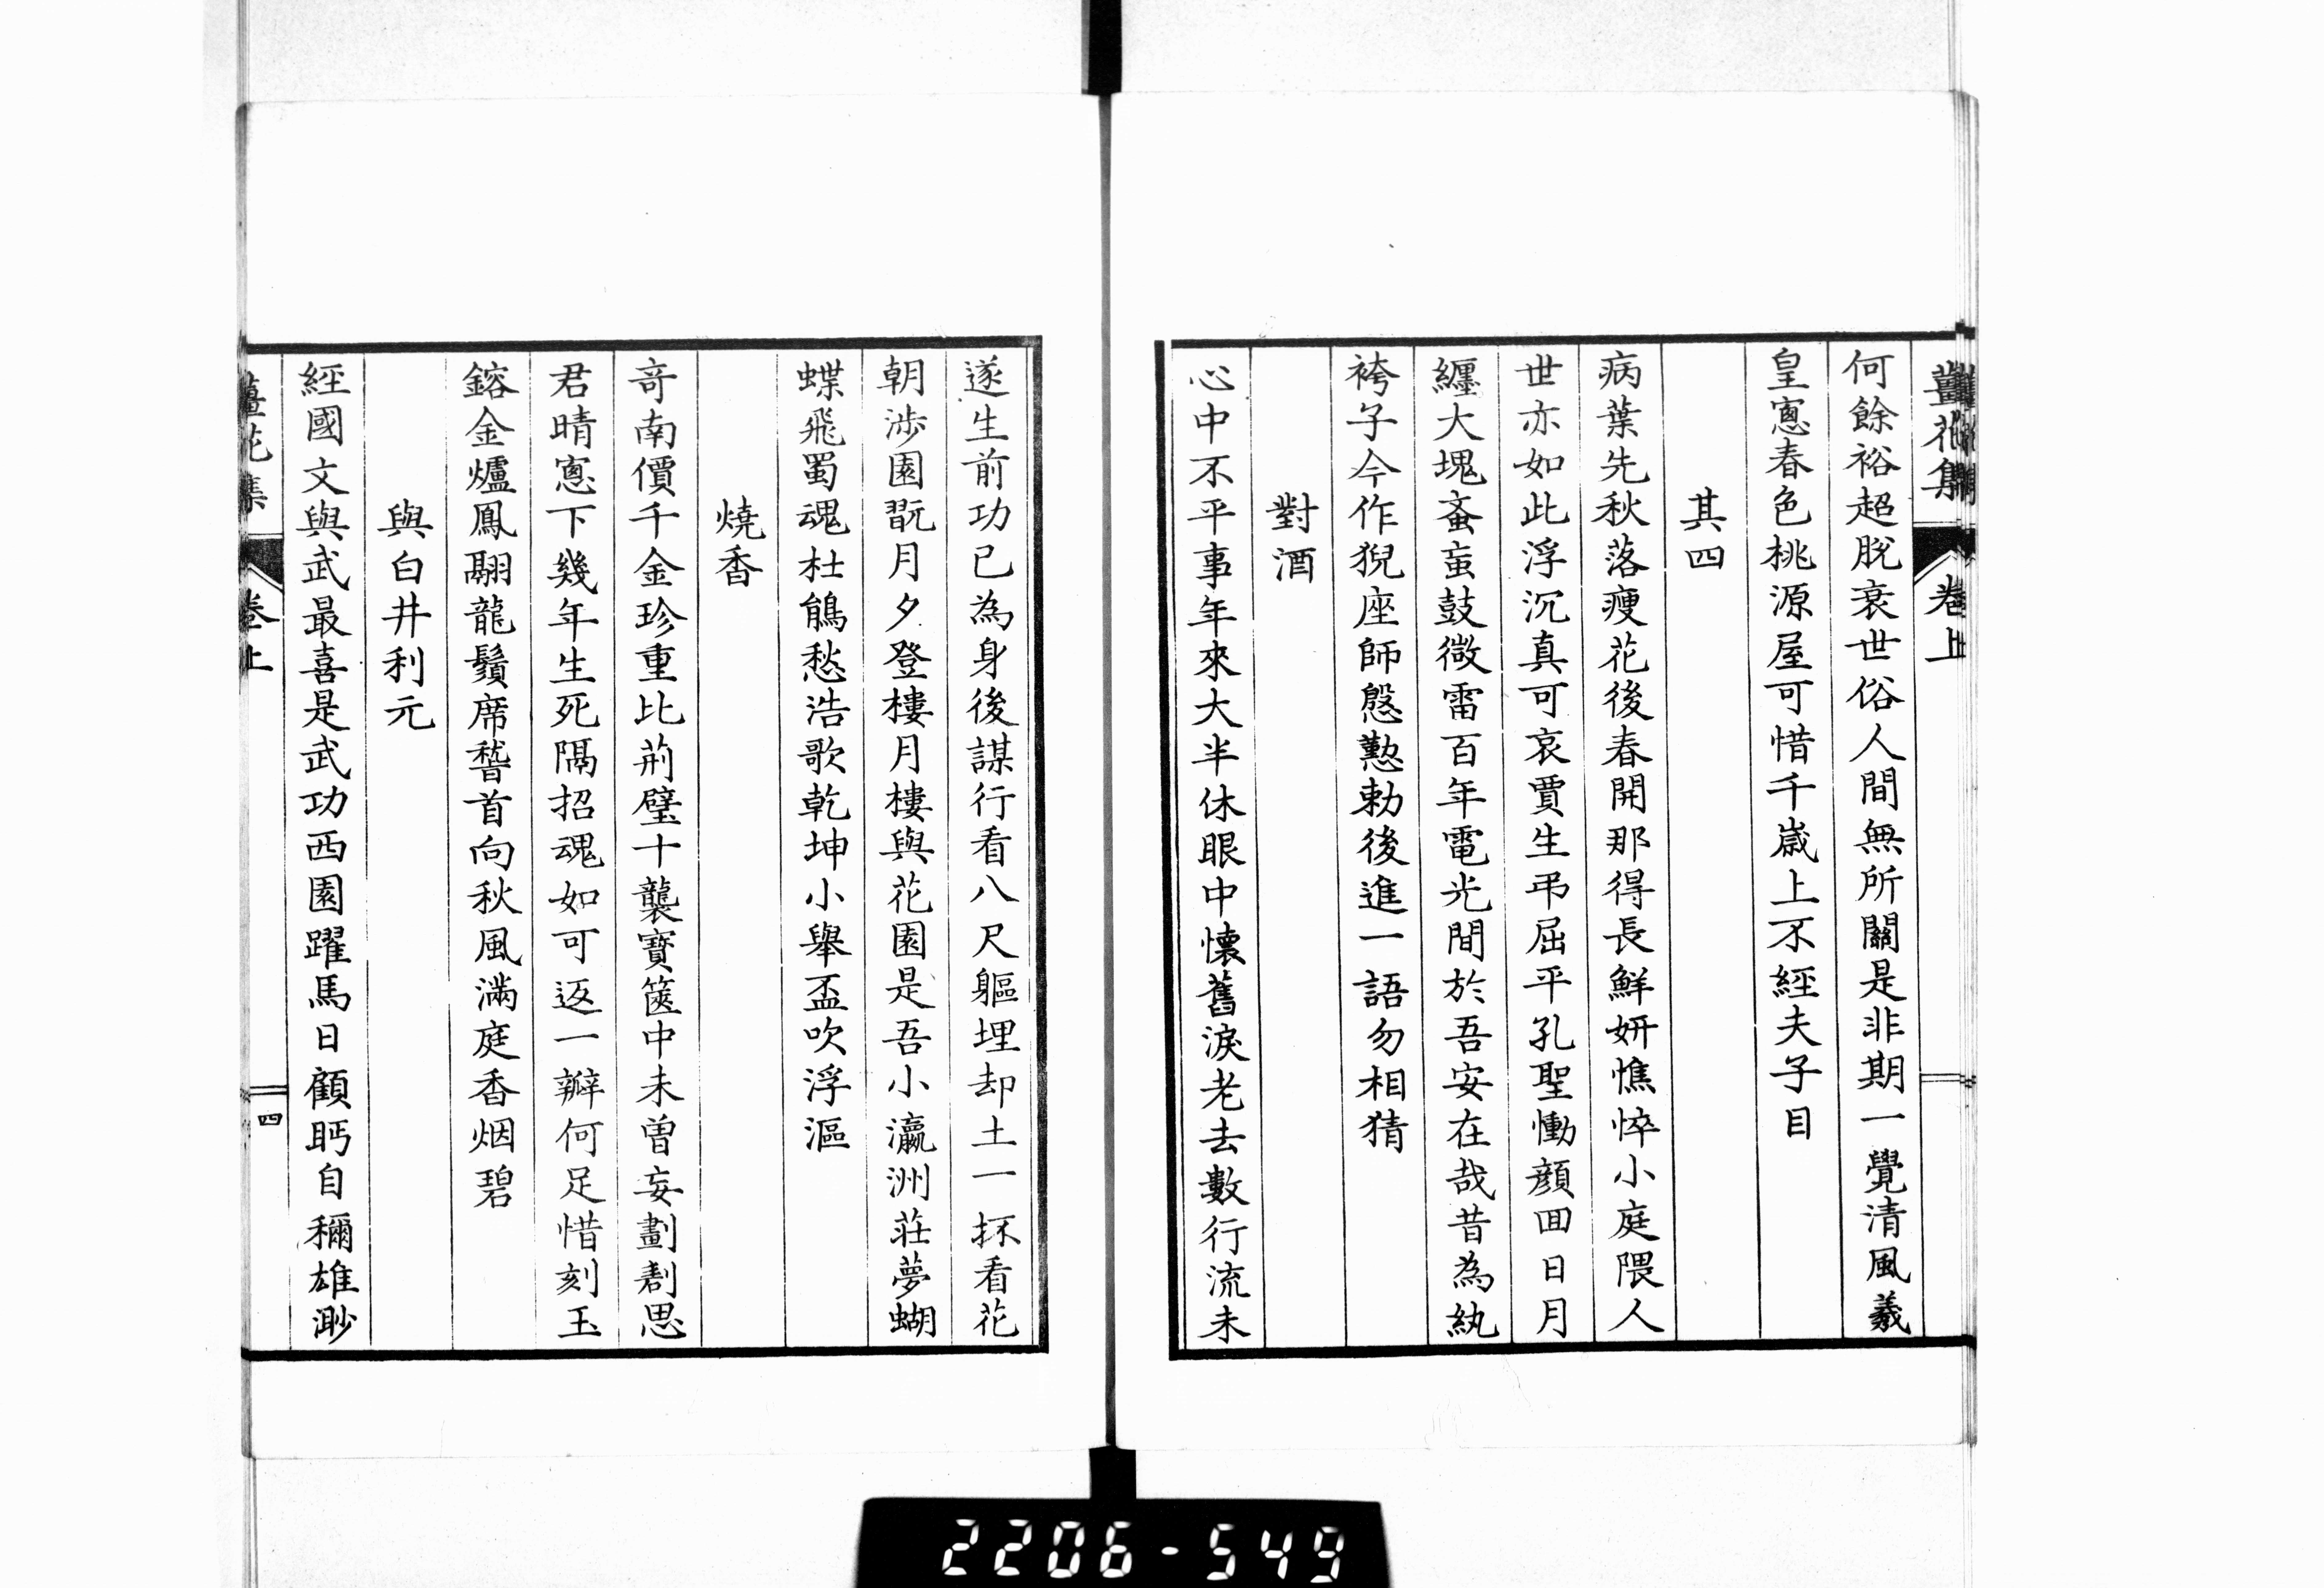 薑花集
卷上
何餘裕超脫衰世俗人間無所關是非期一覺清風羲
皇窻春色桃源屋可惜千歲上不經夫子目
其四
病葉先秋落瘦花後春開那得長鮮妍憔悴小庭隈人
世亦如此浮沉真可哀賈生弔屈平孔聖慟顏回日月
纏大塊蚉蝱鼓微雷百年電光間於吾安在哉昔為紈
袴子今作猊座師慇懃勅後進一語勿相猜
對酒
心中不平事年來大半休眼中懷舊淚老去數行流未
遂生前功已為身後謀行看八尺軀埋却土一抔看花
朝涉園翫月夕登樓月樓與花園是吾小瀛洲莊夢蝴
蝶飛蜀魂杜鵑愁浩歌乾坤小舉盃吹浮漚
燒香
竒南價千金珍重比荊璧十襲寶篋中未曾妄劃劃思
君晴窻下幾年生死隔招魂如可返一瓣何足惜刻玉
鎔金爐鳳翮龍鬚席稽首向秋風滿庭香烟碧
與白井利元
經國文與武最喜是武功西園躍馬日顧眄自稱雄渺
薑花集
卷上
四
2206-549